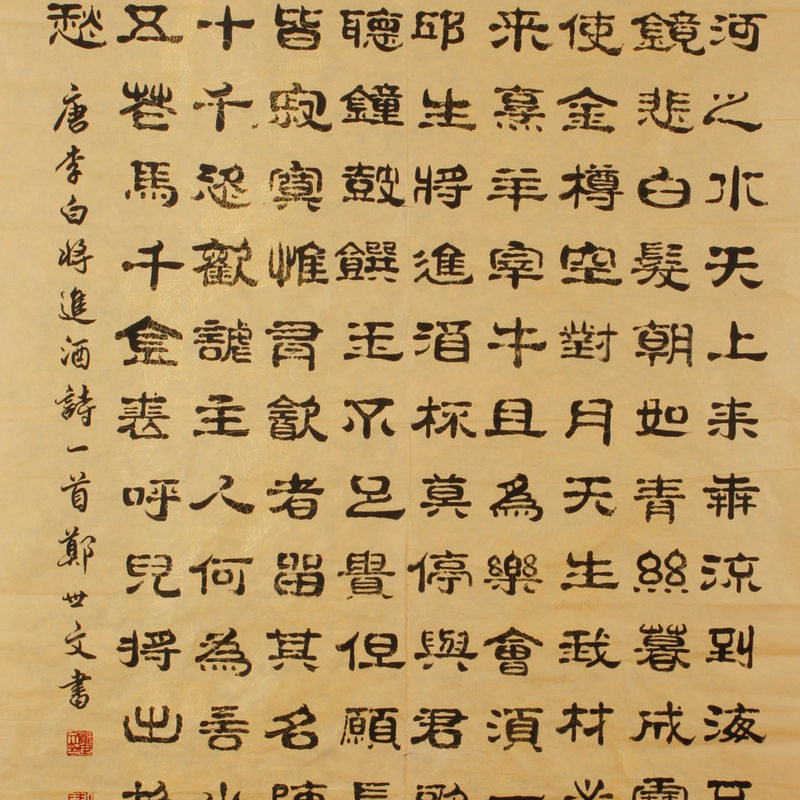 河之水天上来奔流到海
鏡悲白髮朝如青絲暮成雪
使金樽空對月天生我材
来烹羊宰牛且為樂會須一
邱生將進酒杯莫停與君
聽鐘鼓饌玉不足貴但願
皆寂寞惟有飲者留其名
十千恣歡謔主人何為言
五花馬千金裘呼兒將出
愁
唐李白將進酒詩一首鄭世文書